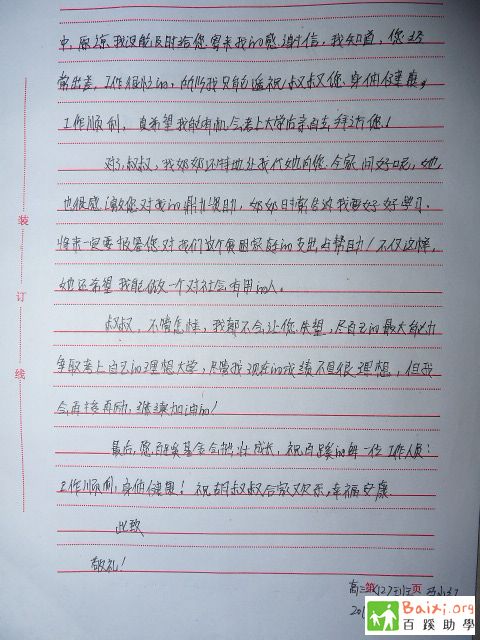 中,原谅我没能及时给您寄来我的感谢信,我知道,您经
常出差,工作很忙的,所以我只能遥祝叔叔您身体健康,
工作顺利,真希望我能有机会考上大学后亲自去拜访您!
对了,叔叔,我奶奶还特地让我代她向您全家问好呢,她
也很感激您对我的鼎力资助,奶奶时常告诉我要好好学习,
将来一定要报答您对我们这个贫困家庭的支出与帮助!不仅这样,
她还希望我能做一个对社会有用的人。
叔叔,不管怎样,我都不会让您失望,尽自己的最大能力
争取考上自己的理想大学,尽管我现在的成绩不是很理想,但我
会再接再励,继续加油的!
最后,愿百蹊基金会茁壮成长,祝百蹊的每一位工作人员:
工作顺利,身体健康!祝胡叔叔合家欢乐,幸福安康
此致
敬礼!
装
订
线
第 页
Baixi.org
百蹊助學